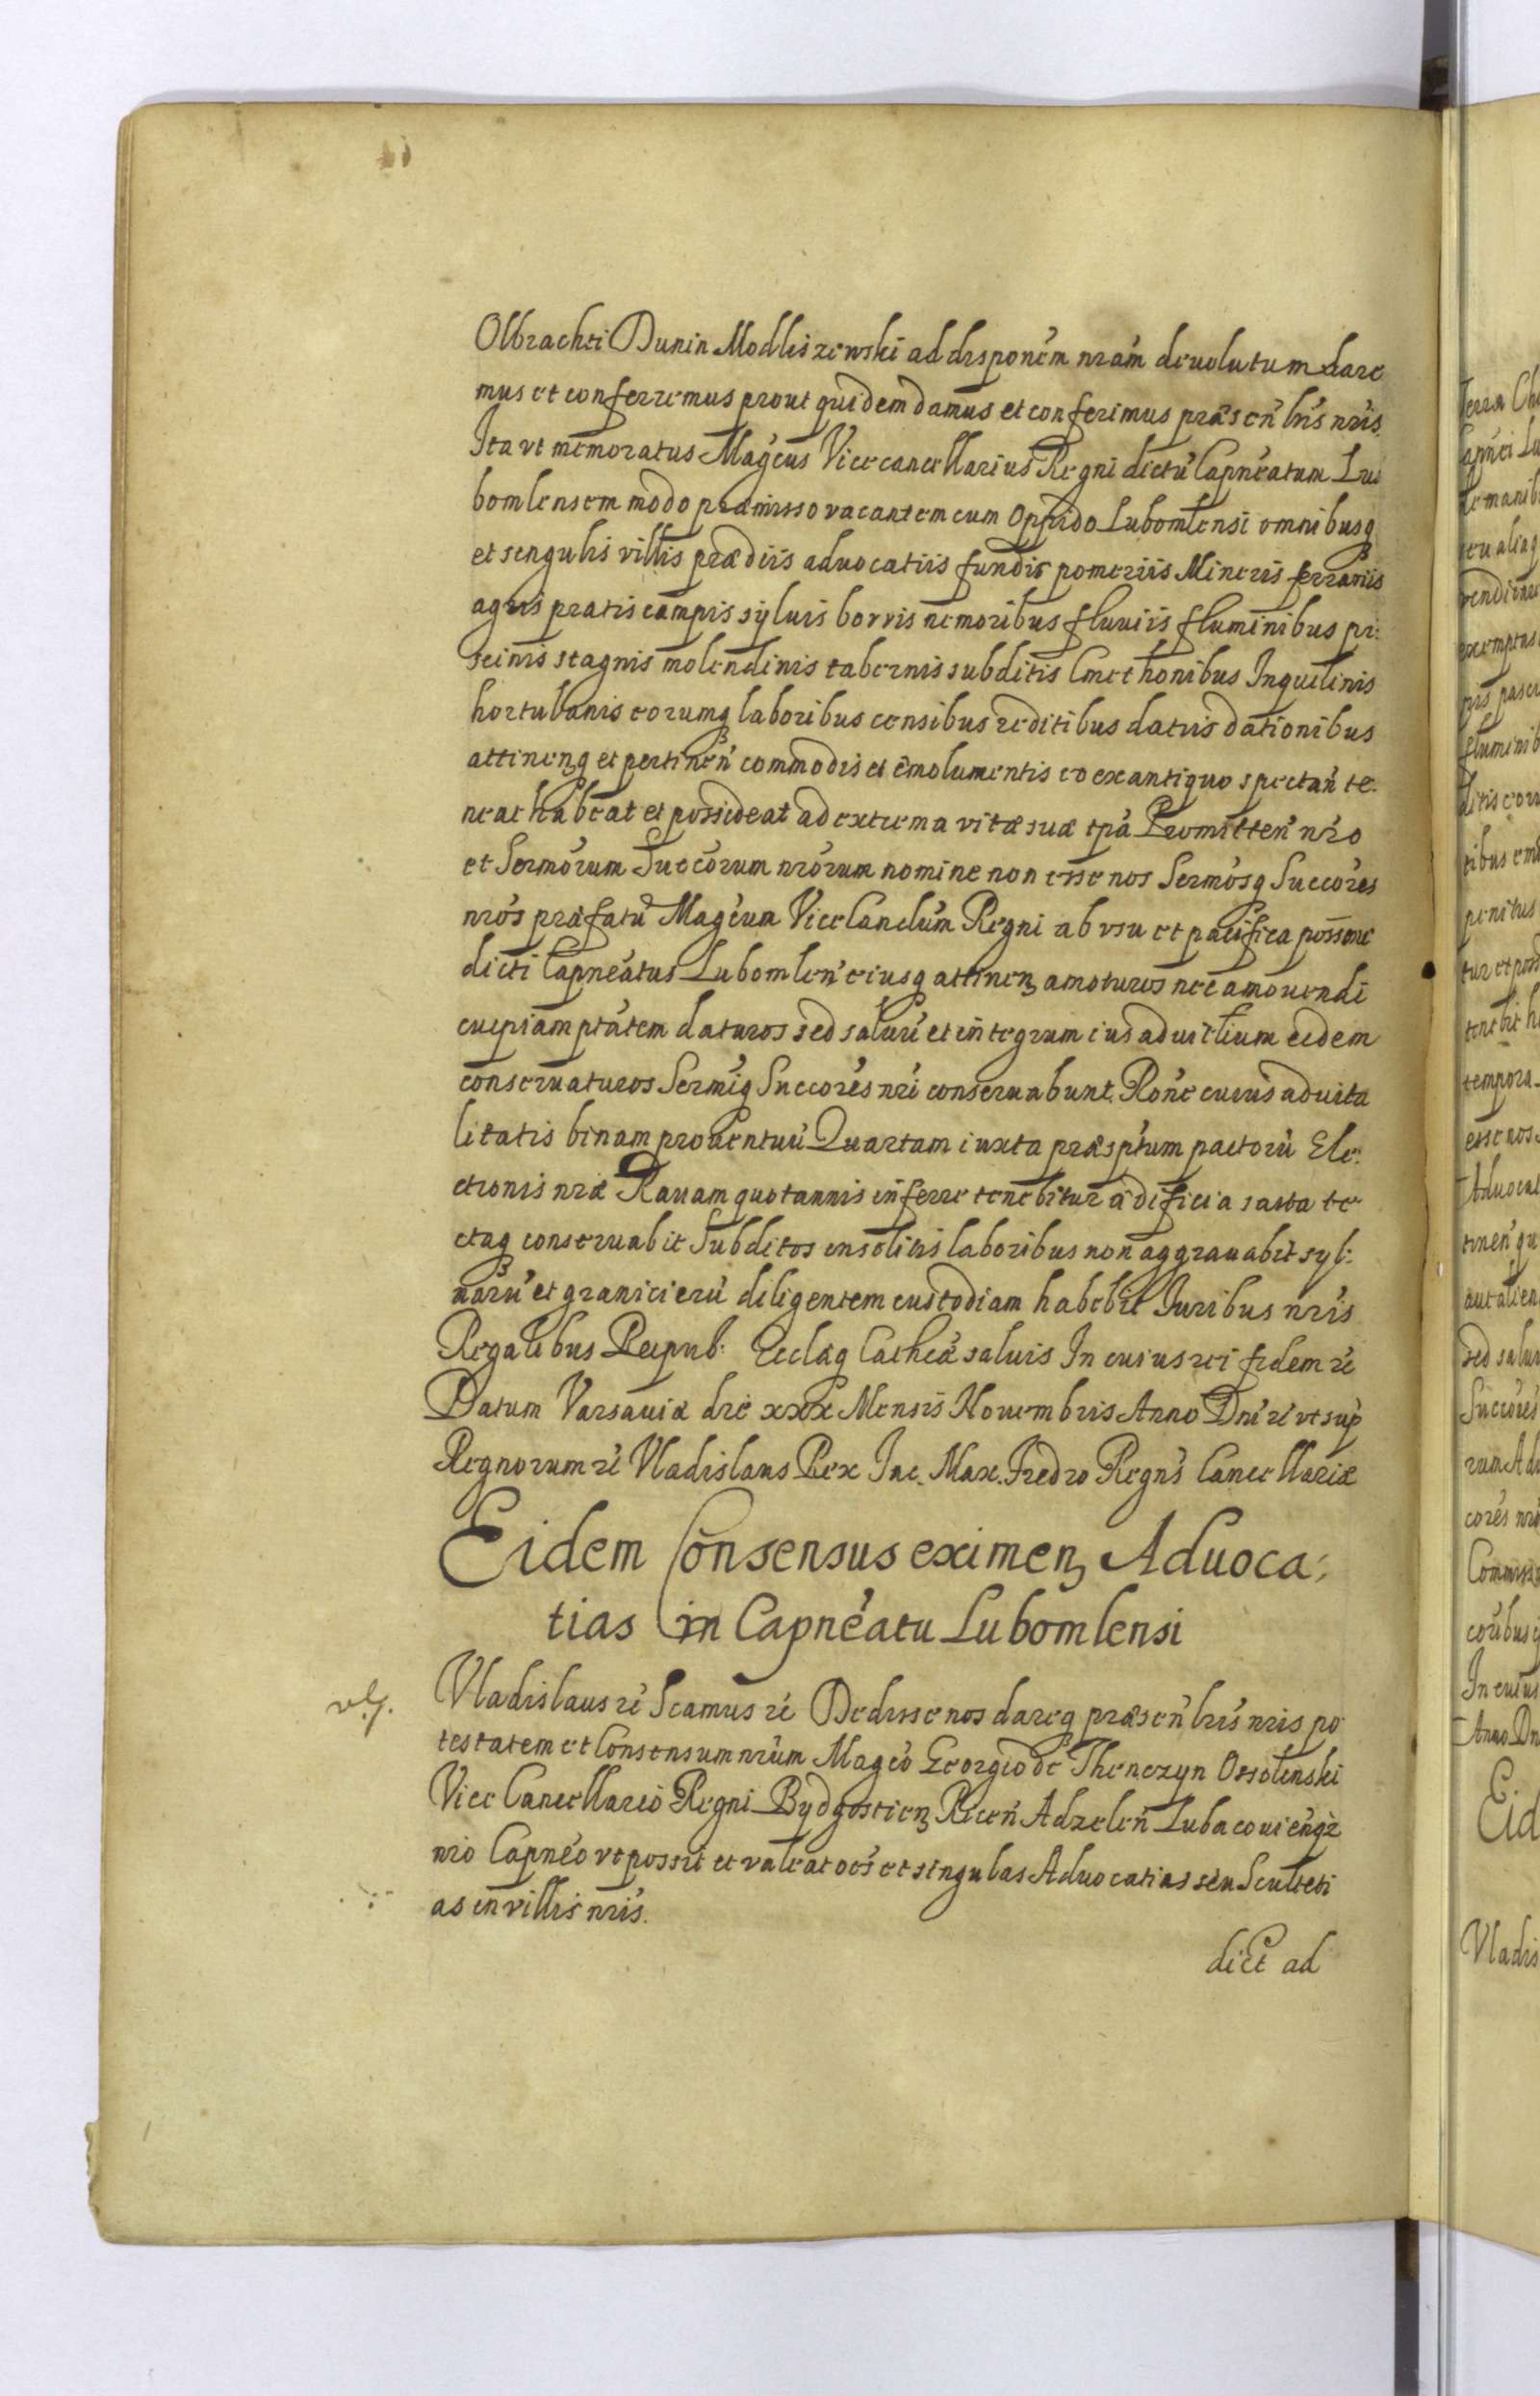 Olbrachti Dunin Modliszewski ad disponem nram deuolutum dare
mus et conferremus prout quidem damus et conferimus præsen lris nris.
Ita vt memoratus Magcus Vicecancellarius Regni dictu Capneatum Lu
bomlensem modo præmisso vacantem cum Oppido Lubomlensi omnibusq
et singulis villis prædiis aduocatiis fundis pomeriis Mineris ferrariis
agris pratis campis syluis borris nemoribus fluuiis fluminibus pi:
scinis stagnis molendinis tabernis subditis Cmethonibus Inquilinis
hortulanis eorumq laboribus censibus reditibus datiis dationibus
attinenq et pertinen commodis et emolumentis eo ex antiquo spectan te:
neat habeat et possideat ad extrema vitæ suæ tpa Promitten nro
et Sermorum Succorum nrorum nomine non esse nos Sermosq Succores
nros præfatu Magcum ViceCanclum Regni ab vsu et pacifica possone
dicti Capneatus Lubomlen eiusq attinen amoturos nec amouendi
cuipiam ptatem daturos sed saluu et integrum ius aduitium eidem
conseruaturos Sermiq Succores nri conseruabunt. Rone cuius aduita
litatis binam prouentuu Quartam iuxta præsptum pactoru Ele:
ctionis nræ Rauam quotannis inferre tenebitur ædificia sarta te
ctaq conseruabit Subditos insolitis laboribus non aggrauabit syl:
uaru et granicieru diligentem custodiam habebit Iuribus nris
Regalibus Reipub: Ecclæq Cathcæ saluis In cuius rei fidem rc
Datum Varsauiæ die xxx Mensis Nouembris Anno Dni rc vt sup
Regnorum rc Vladislaus Rex Iac. Max. Fredro Regns Cancellariæ
Eidem Consensus eximen Aduoca:
tias in Capneatu Lubomlensi
Vladislaus rc Scamus rc Dedisse nos dareq præsen lris nris po
testatem et Consensum nrum Magco Georgio de Thenczyn Ossolinski
Vice Cancellario Regni Bydgostien Ricen Adzelen Lubacouienq
nro Capneo vt possit et valeat oes et singulas Aduocatias seu Sculteti
as in villis nris.
dict ad